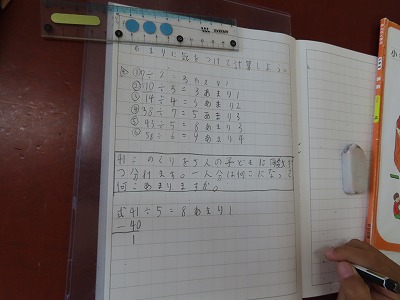 あまりに気をつけて計算しよう。
①7÷2=3あまり1
②10÷3=3あまり1
③14÷4=3あまり2
④38÷7=5あまり3
⑤43÷5=8あまり3
⑥58÷6=9あまり4
41このくりを5人の子どもに同じ数ず
つ分けます。一人分は何こになっ
何こあまりますか。
式41÷5=8あまり1
-40
1